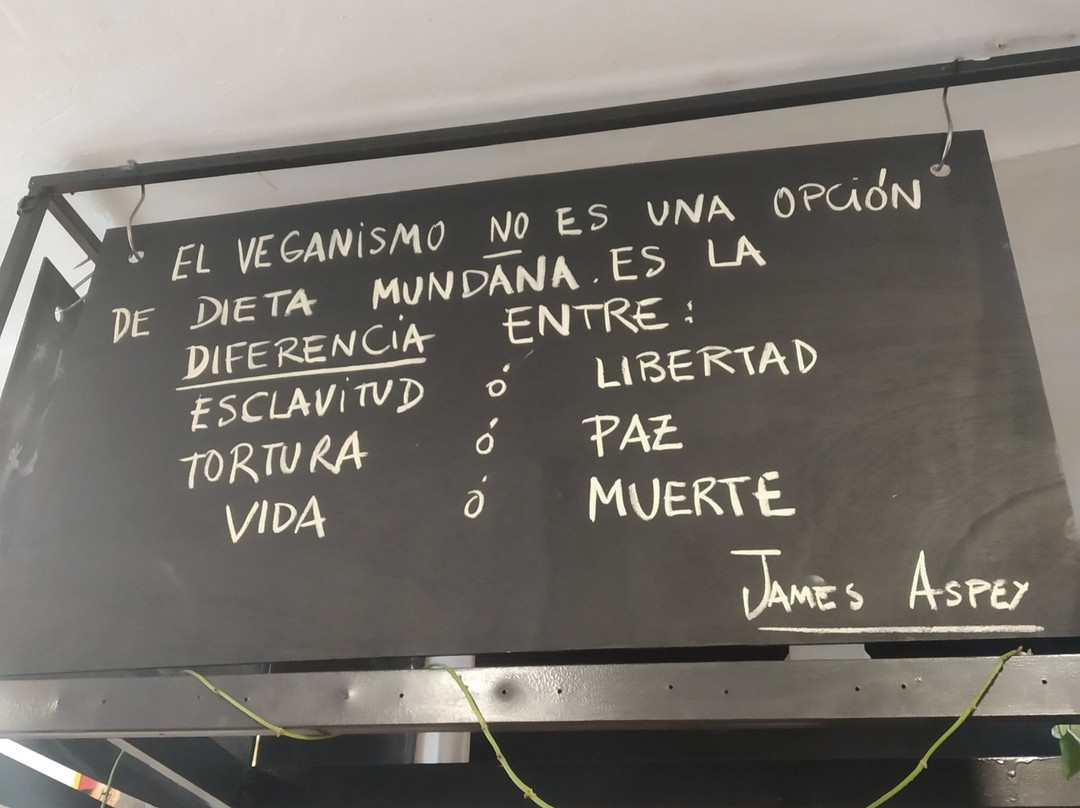 EL VEGANISMO NO ES UNA OPCIÓN
DE DIETA MUNDANA. ES LA
DIFERENCIA ENTRE:
ESCLAVITUD ó LIBERTAD
TORTURA ó PAZ
VIDA ó MUERTE
JAMES ASPEY